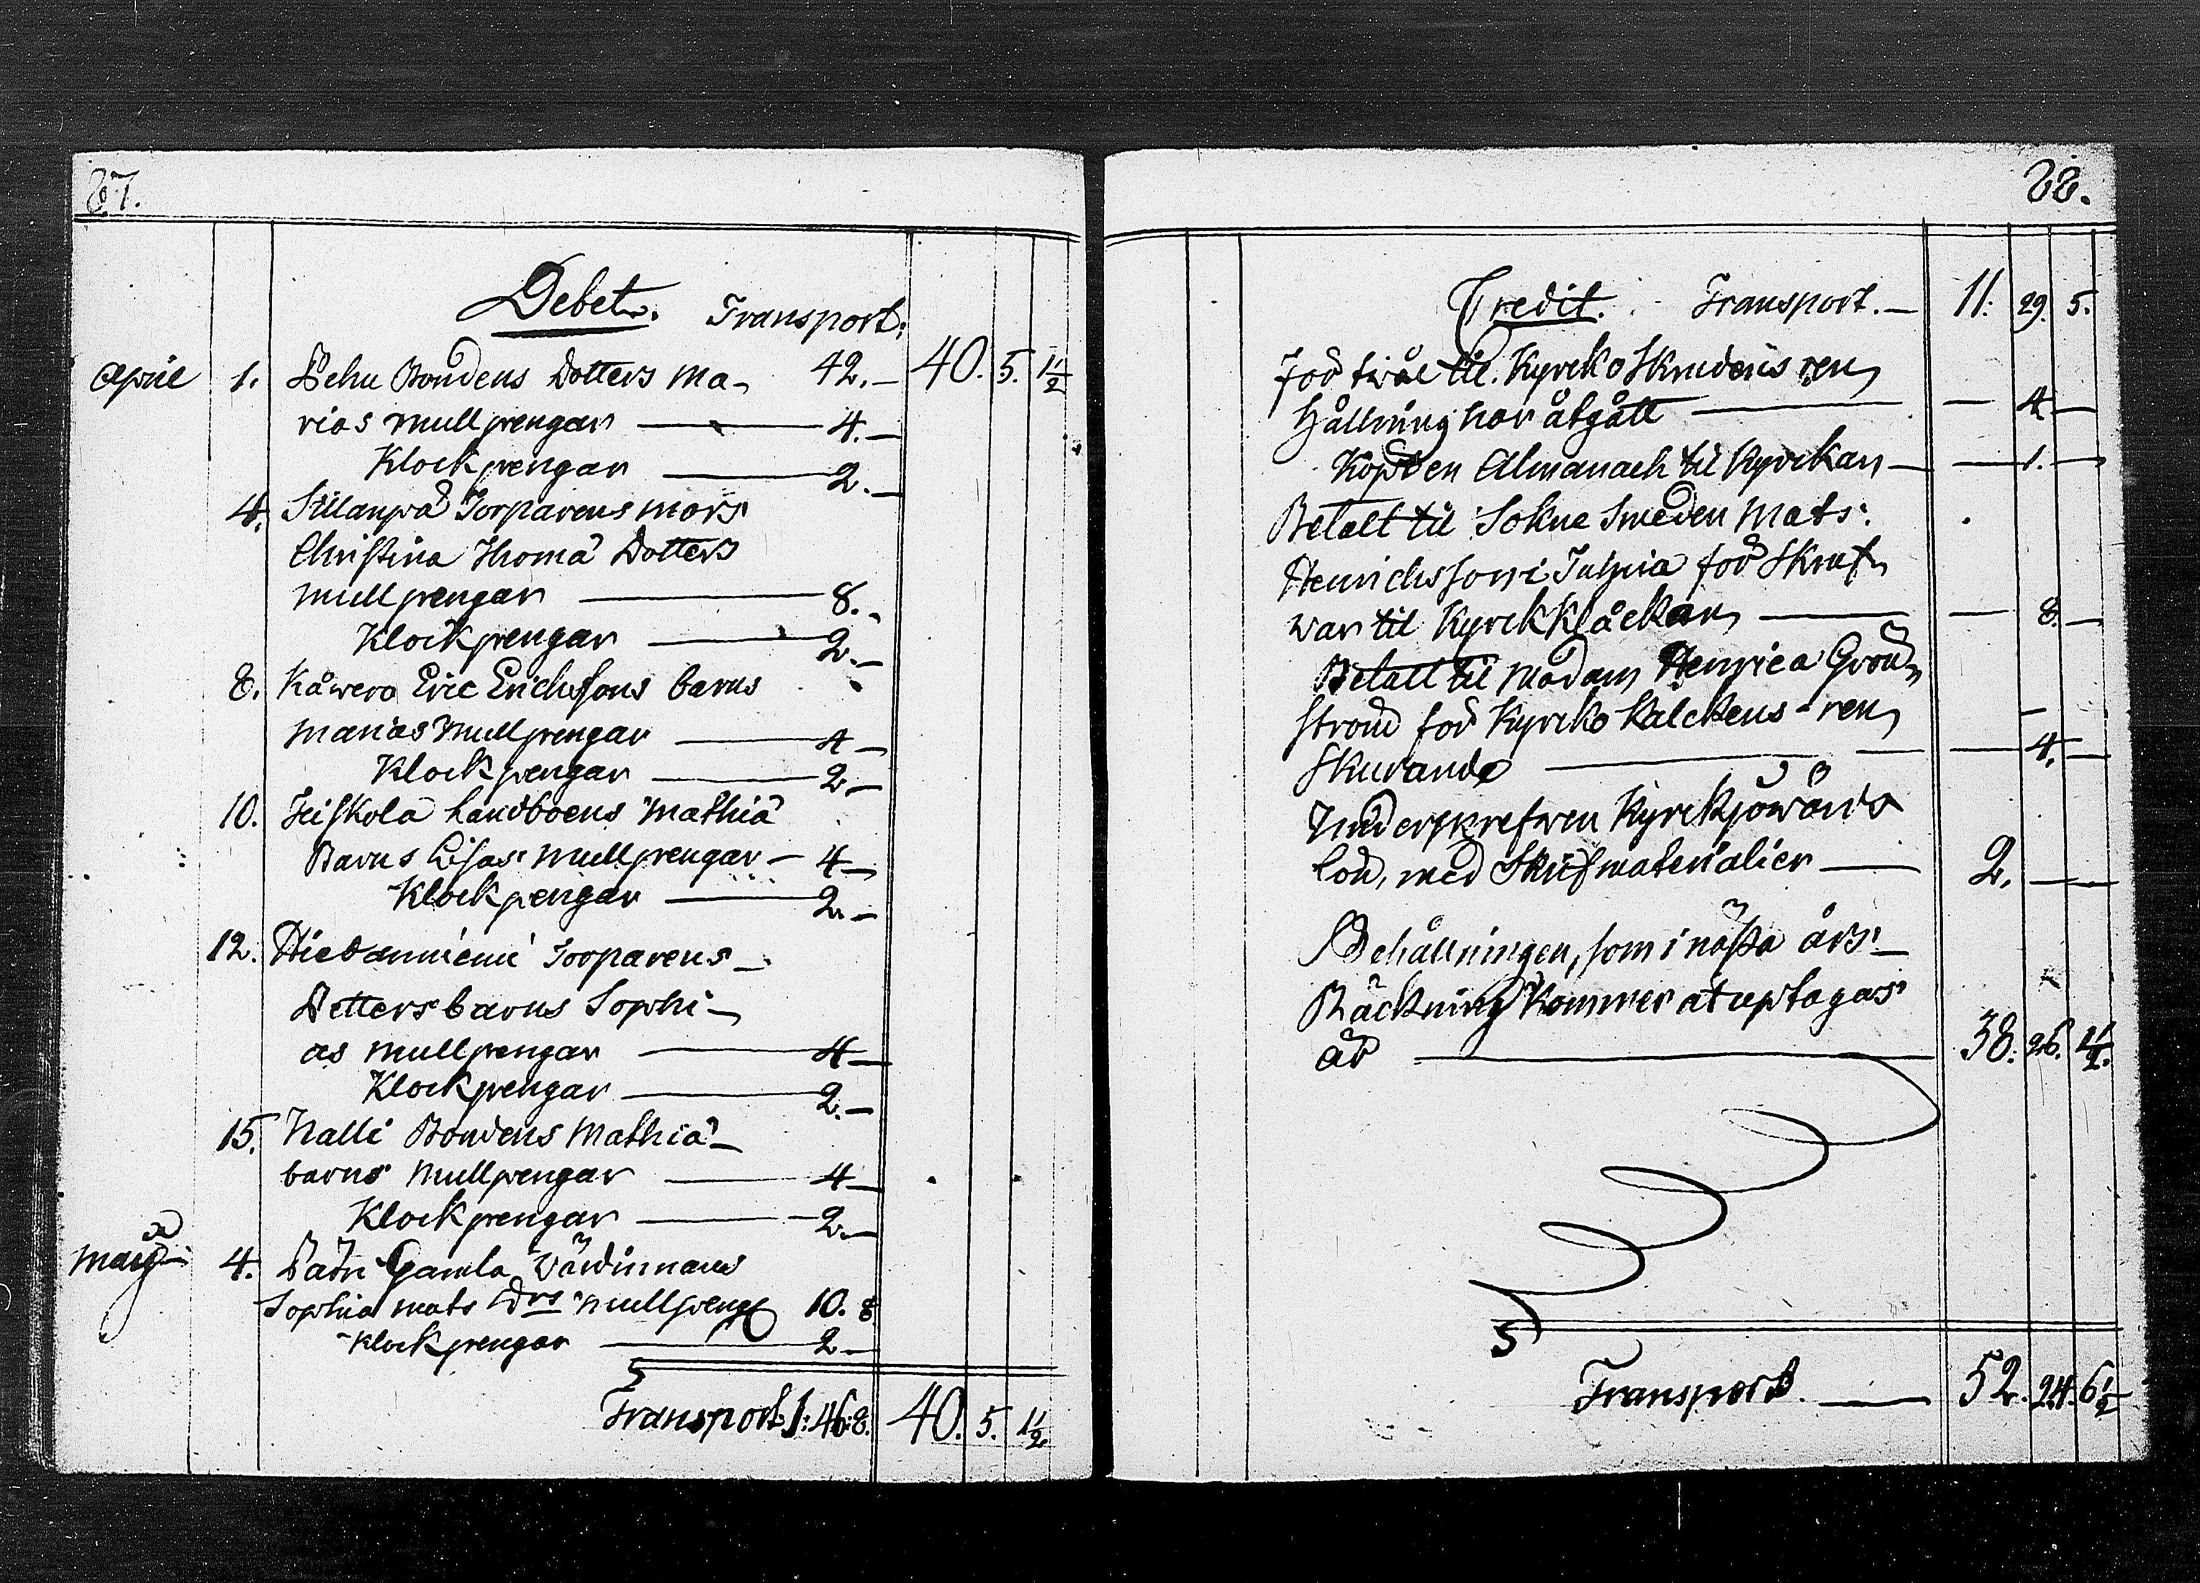 87.
Debet. Transport:
April 1. Pehu Bondens Dotters Ma- 42.— 40. 5. 1 1/2
rias mullpengar — 4.—
Klockpengar — 2.—
4. Sillanpä Torparens mors
Christina Thomæ Dotters
mullpengar — 8.-
Klockpengar — 2.—
8. Kåwero Eric Erichssons barns
Marias Mullpengar — 4—
Klockpengar — 2—
10. Landboens Mathiæ
Barns Lisas Mullpengar — 4—
Klockpengar — 2.—
12. Hietanniemi Torparens
Dotters barns Sophi-
as mullpengar — 4—
Klockpengar — 2.—
15. Nalli Bondens Mathiæ
barns Mullpengar — 4—
Klockpengar — 2.—
Maij 4. Gamla Wärdinnans
Sophia Mats Drs mullpeng 10. 8
Klockpengar — 2—
Transport 1: 46: 8. 40. 5. 1 1/2
88.
Credit. Transport.— 11: 29. 5.
För twål til Kyrko Skrudens ren
hållning har åtgått — — 4 —
Köpt en Almanach til Kyrckan — — 1. —
Betalt til Sokne Smeden Mats
Henrichsson i Juhnia för Skruf
war til Kyrck Klåckan — — 8. —
Betalt til Madam Henrica Grön
ström för Kyrcko Kalckens ren
Skurande — — 4. —
Underskrefwen Kyrckjowärds
lön, med Skrifmaterialier — 2. — —
Behållningen, som i nästa års
Räckning kommer at uptagas
är — 38: 26. 1 1/2.
Transport. — 52. 24. 6 1/2